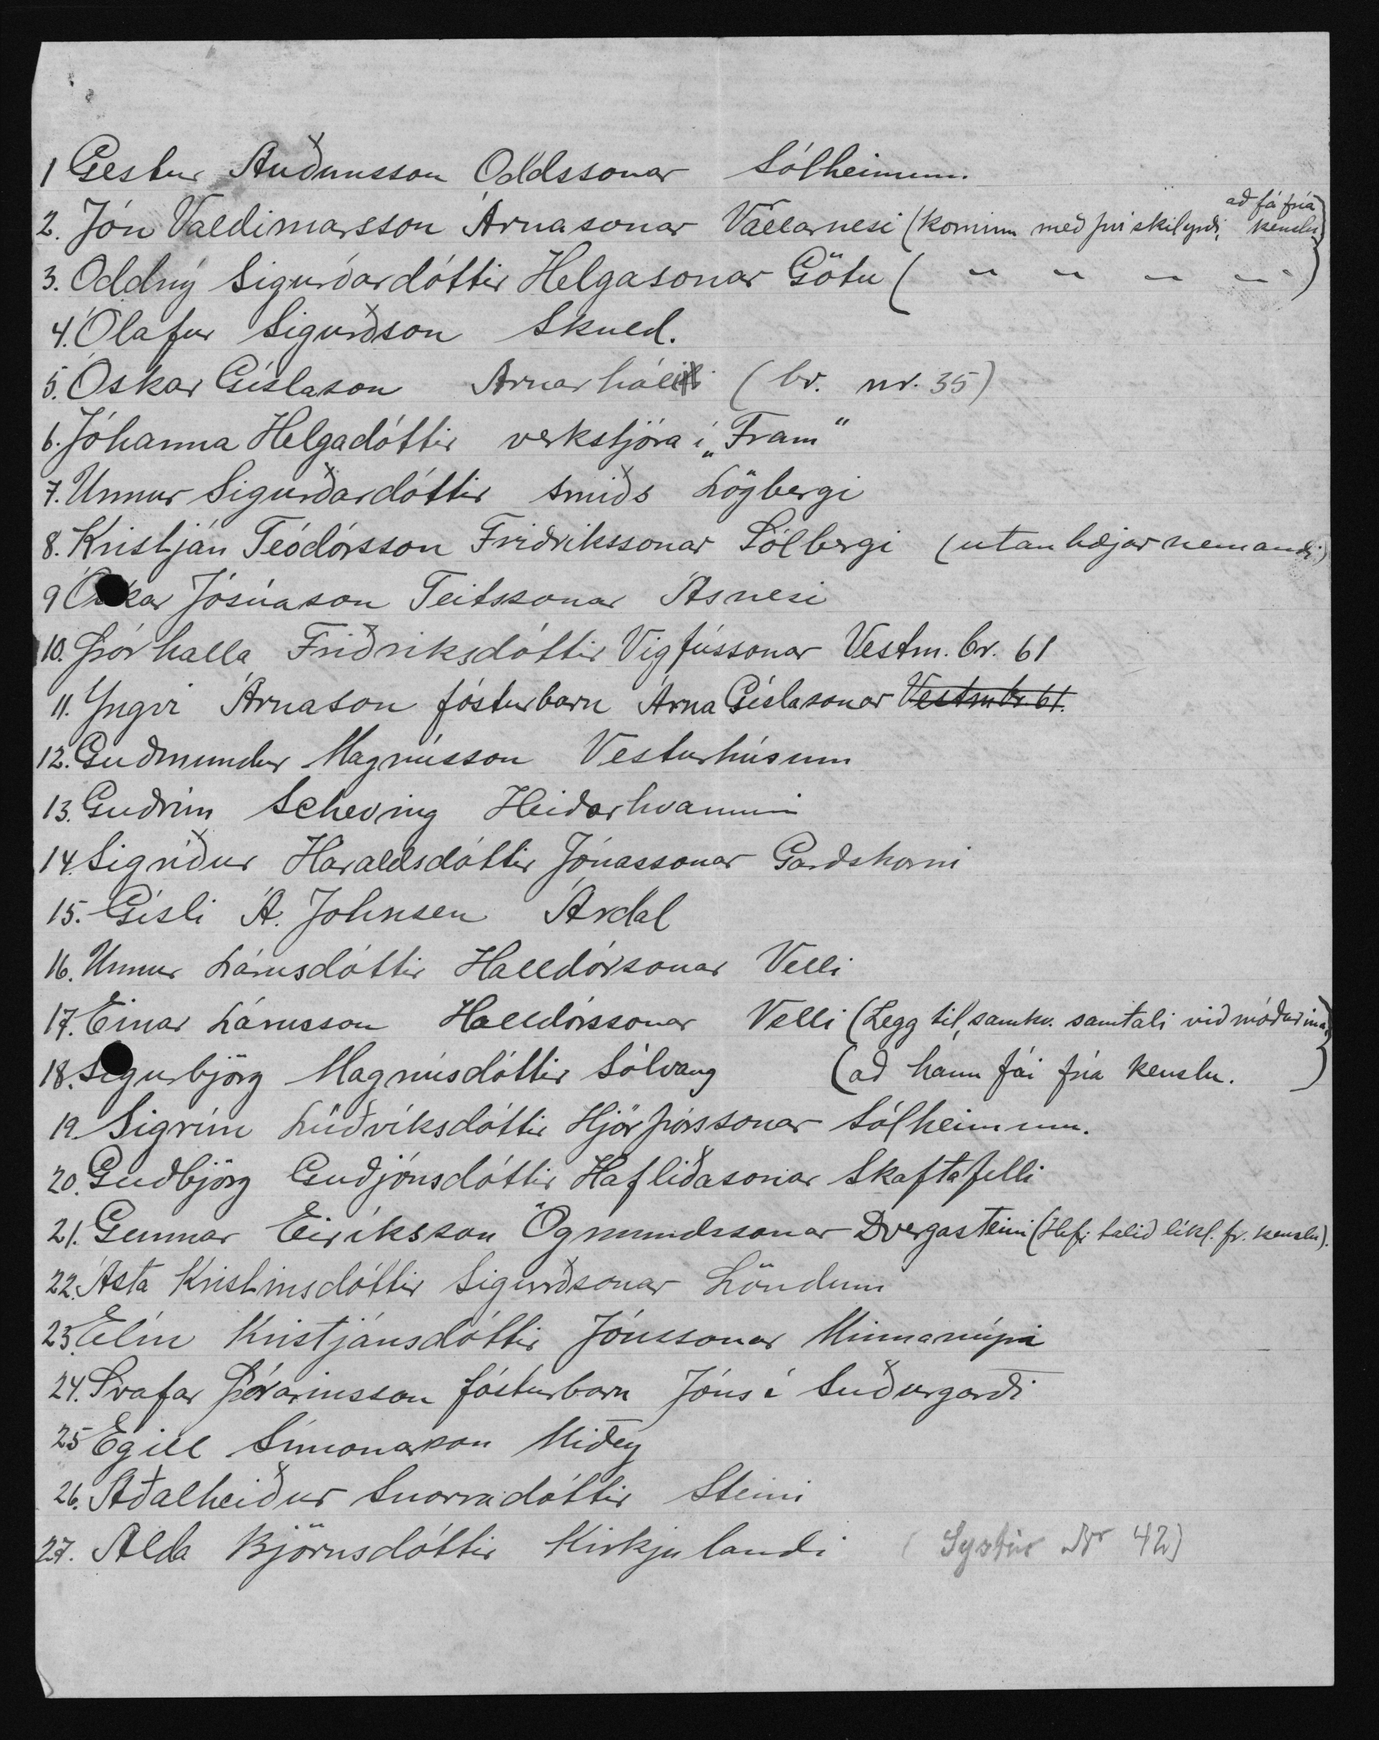 1 Gestur Auðunsson Oddssonar Sólheimum.
2. Jón Valdimarsson Árnasonar Vallarnesi (kominn með því skilyrði, að fá fría kenslu)
3. Oddný Sigurðardóttir Helgasonar Götu ( " " " " )
4. Ólafur Sigurðson Skuld.
5. Óskar Gíslason Arnarhóli (br. nr. 35)
6. Jóhanna Helgadóttir verkstjóra í „Fram"
7. Unnur Sigurðardóttir smiðs Lögbergi
8. Kristján Teódórsson Friðrikssonar Sólbergi (utanbæjarnemandi)
9 Óskar Jósúason Teitssonar Ásnesi
10. Þórhalla Friðriksdóttir Vigfússonar Vestm.br. 61
11. Yngvi Árnason fósturbarn Árna Gíslasonar Vestmbr. 61.
12. Guðmundur Magnússon Vesturhúsum
13. Guðrún Scheving Heiðarhvammi
14. Sigríður Haraldsdóttir Jónassonar Garðshorni
15. Gísli Á. Johnsen Árdal
16. Unnur Lárusdóttir Halldórsonar Velli
17. Einar Lárusson Halldórssonar Velli (Legg til, samkv. samtali við móðurina,)
18. Sigurbjörg Magnúsdóttir Sólvang (að hann fái fría kenslu. )
19. Sigrún Lúðvíksdóttir Hjörþórssonar Sólheimum.
20. Guðbjörg Guðjónsdóttir Hafliðasonar Skaftafelli
21. Gunnar Eiríksson Ögmundssonar Dvergasteini (Hefi talið líkl. fr. kenslu).
22. Ásta Kristinsdóttir Sigurðsonar Löndum
23. Elín Kristjánsdóttir Jónssonar Minnanúpi
24. Svafar Þórarinsson fósturbarn Jóns í Suðurgarði
25 Egill Símonarson Miðey
26. Aðalheiður Snorradóttir Steini
27. Alda Björnsdóttir Kirkjulandi (Systir Nr 42)